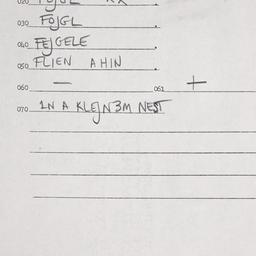 020
030 FÖJGL
040 FEJGELE
050 FLIEN AHIN
060 — 061 +
070 IN A KLEJN3M NEST